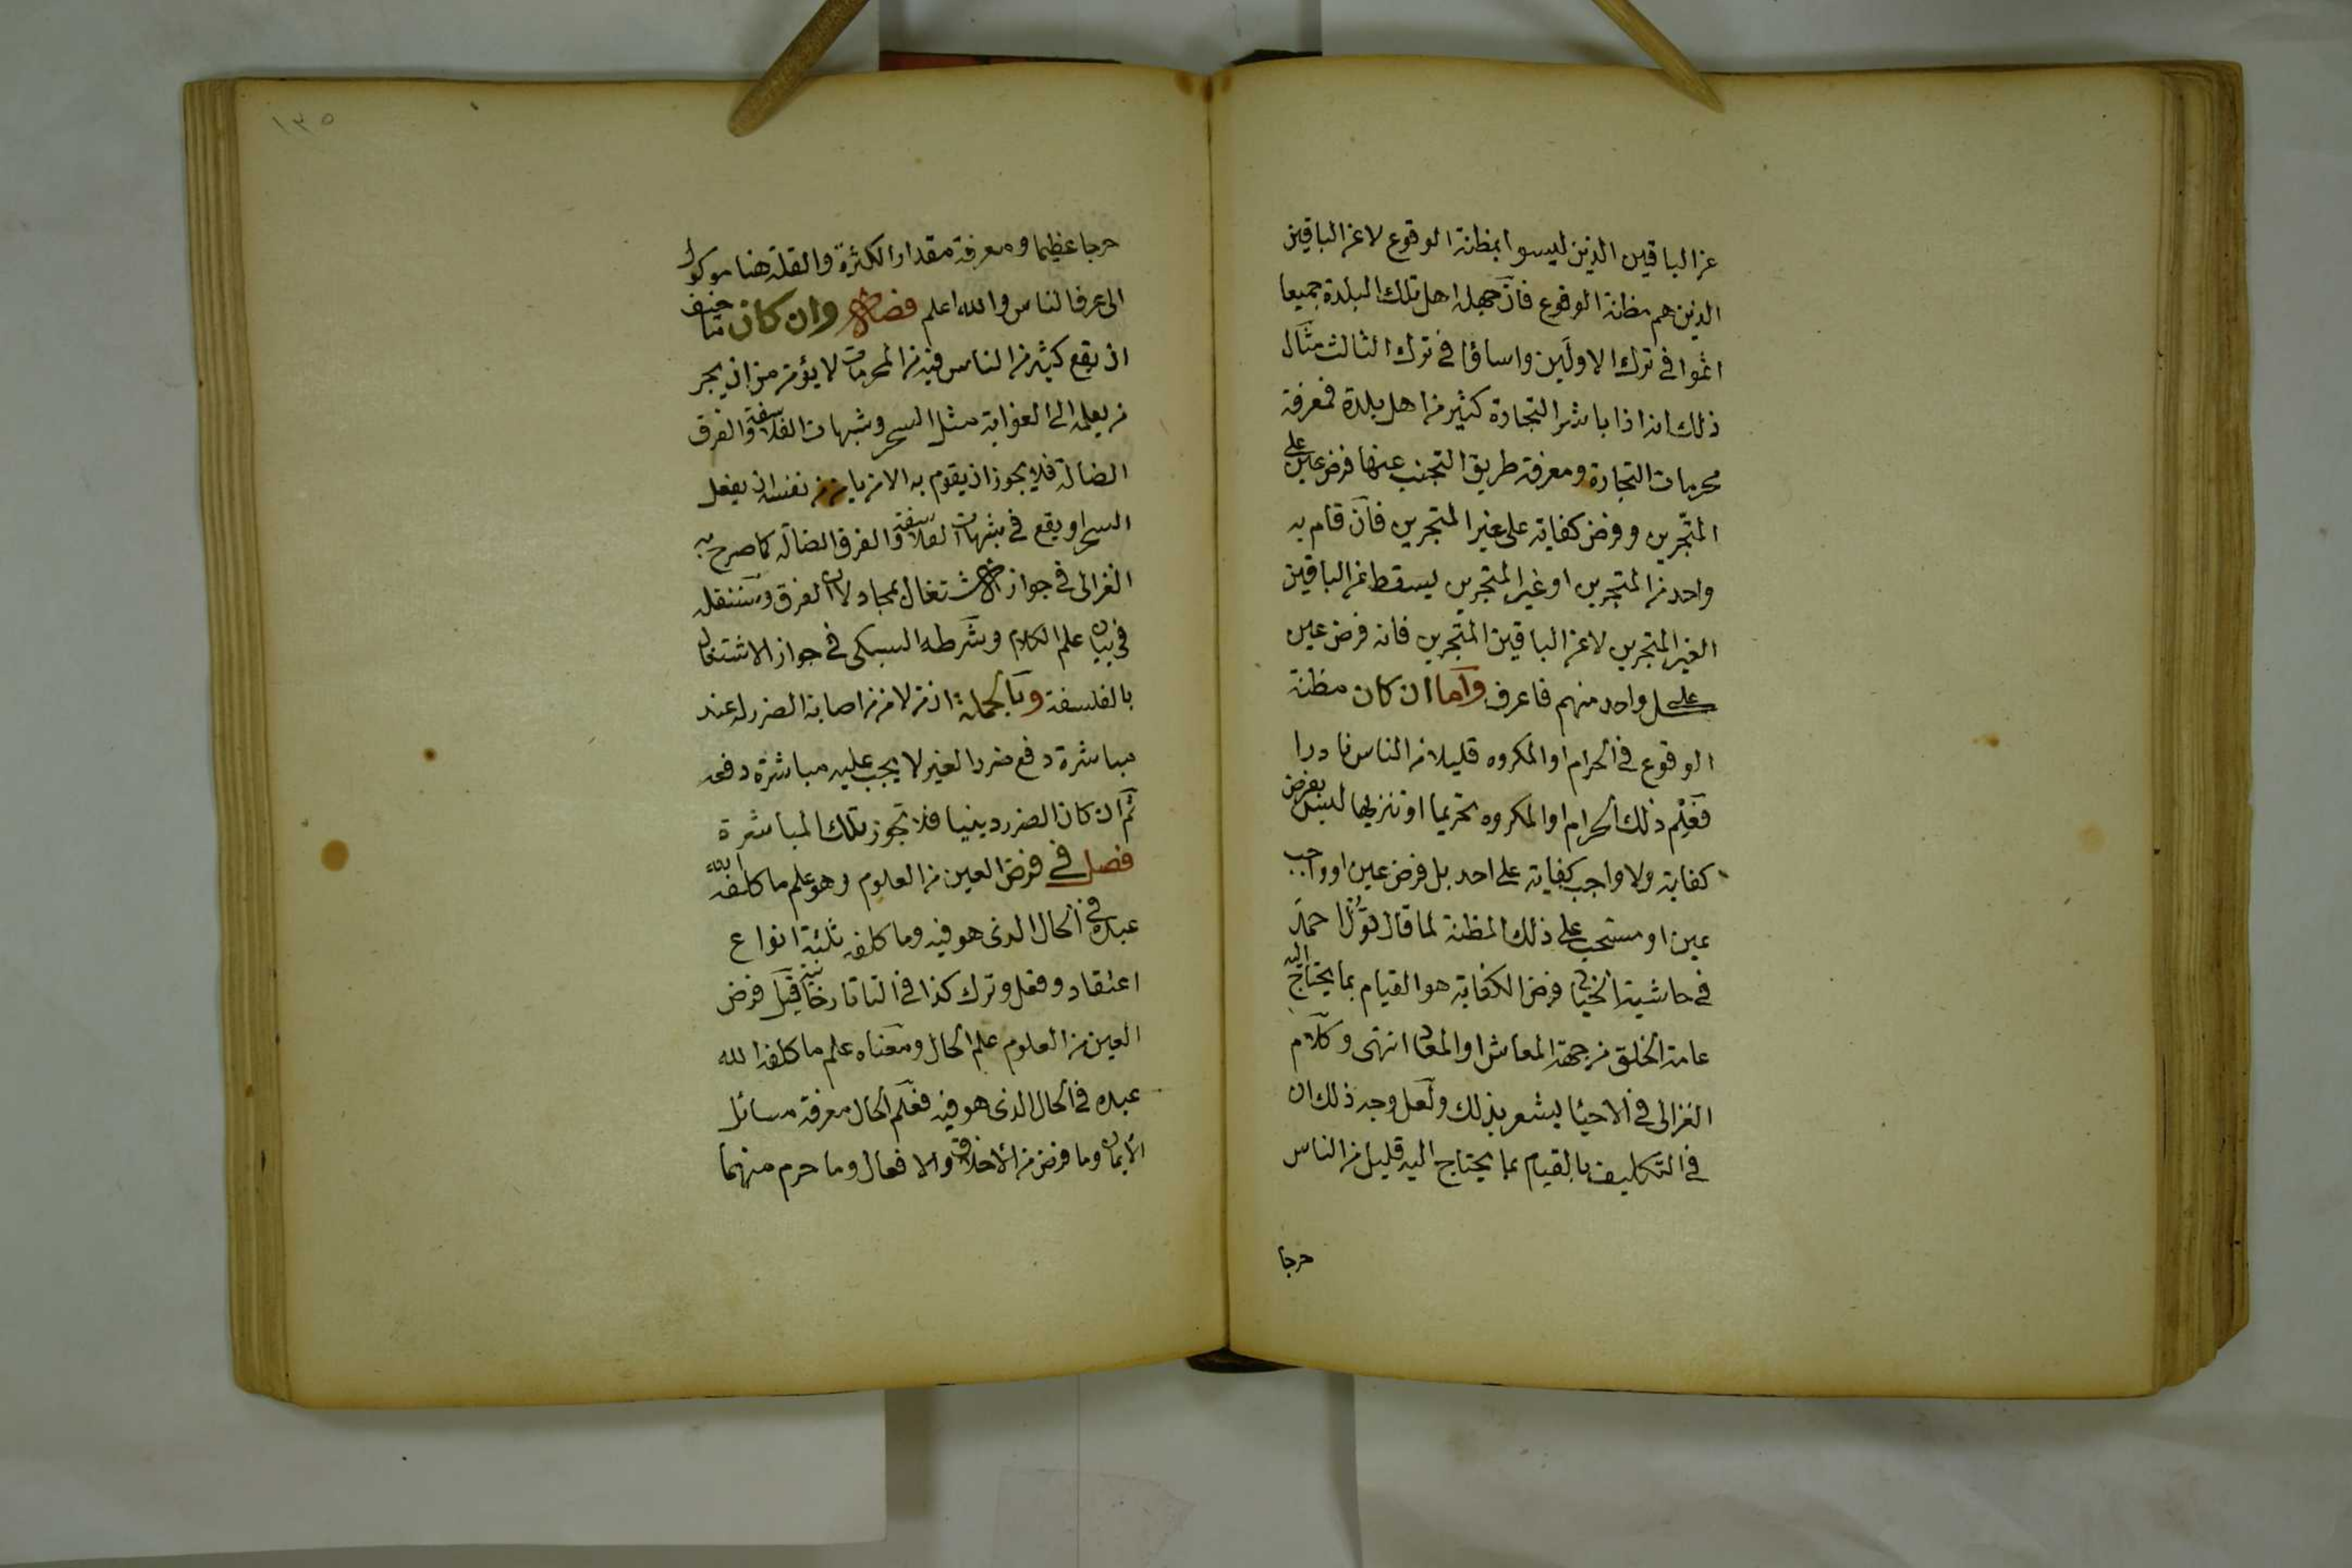 عن الباقين الذين ليسوا بمظنة الوقوع لا عن الباقين
الذين هم مظنة الوقوع فان جهله اهل تلك البلدة جميعا
اثموا في ترك الاولين واساؤا في ترك الثالث مثال
ذلك انه اذا باشر التجارة كثير من اهل بلدة فمعرفة
محرمات التجارة ومعرفة طريق التجنب عنها فرض عين على
المتجرين وفرض كفاية على غير المتجرين فان قام به
واحد من المتجرين او غير المتجرين يسقط عن الباقين
الغير المتجرين لا عن الباقين المتجرين فانه فرض عين
على كل واحد منهم فاعرف واما ان كان مظنة
الوقوع في الحرام او المكروه قليلا من الناس نادرا
فعلم ذلك الحرام او المكروه تحريما او تنزيها ليس بفرض
كفاية ولا واجب كفاية على احد بل فرض عين او واجب
عين او مستحب على ذلك المظنة لما قال قول احمد
في حاشية الخيالي فرض الكفاية هو القيام بما يحتاج اليه
عامة الخلق من جهة المعاش او المعاد انتهى وكلام
الغزالي في الاحيا يشعر بذلك ولعل وجه ذلك ان
في التكليف بالقيام بما يحتاج اليه قليل من الناس
حرجا
١٣٥
حرجا عظيما ومعرفة مقدار الكثرة والقلة هنا موكول
الى عرف الناس والله اعلم فصل وان كان ما خيف
ان يقع كثير من الناس فيه من المحرمات لا يؤمن من ان يجر
من يعلمه الى الغواية مثل السحر وشبهات الفلاسفة والفرق
الضالة فلا يجوز ان يقوم به الا من يامن من نفسه ان يفعل
السحر او يقع في شبهات الفلاسفة والفرق الضالة كما صرح به
الغزالي في جواز الاشتغال بمجادلات الفرق وسننقله
في بيان علم الكلام وشرطه السبكي في جواز الاشتغال
بالفلسفة وبالجملة ان من لا من من اصابة الضرر له عند
مباشرة دفع ضرر الغير لا يجب عليه مباشرة دفعه
ثم ان كان الضرر دينيا فلا تجوز تلك المباشرة
فصل في فرض العين من العلوم وهو علم ما كلف الله
عبده في الحال الذي هو فيه وما كلفه ثلثة انواع
اعتقاد وفعل وترك كذا في التاتارخانية قيل فرض
العين من العلوم علم الحال ومعناه علم ما كلفه الله
عبده في الحال الذي هو فيه فعلم الحال معرفة مسائل
الايمان وما فرض من الاخلاق والافعال وما حرم منهما